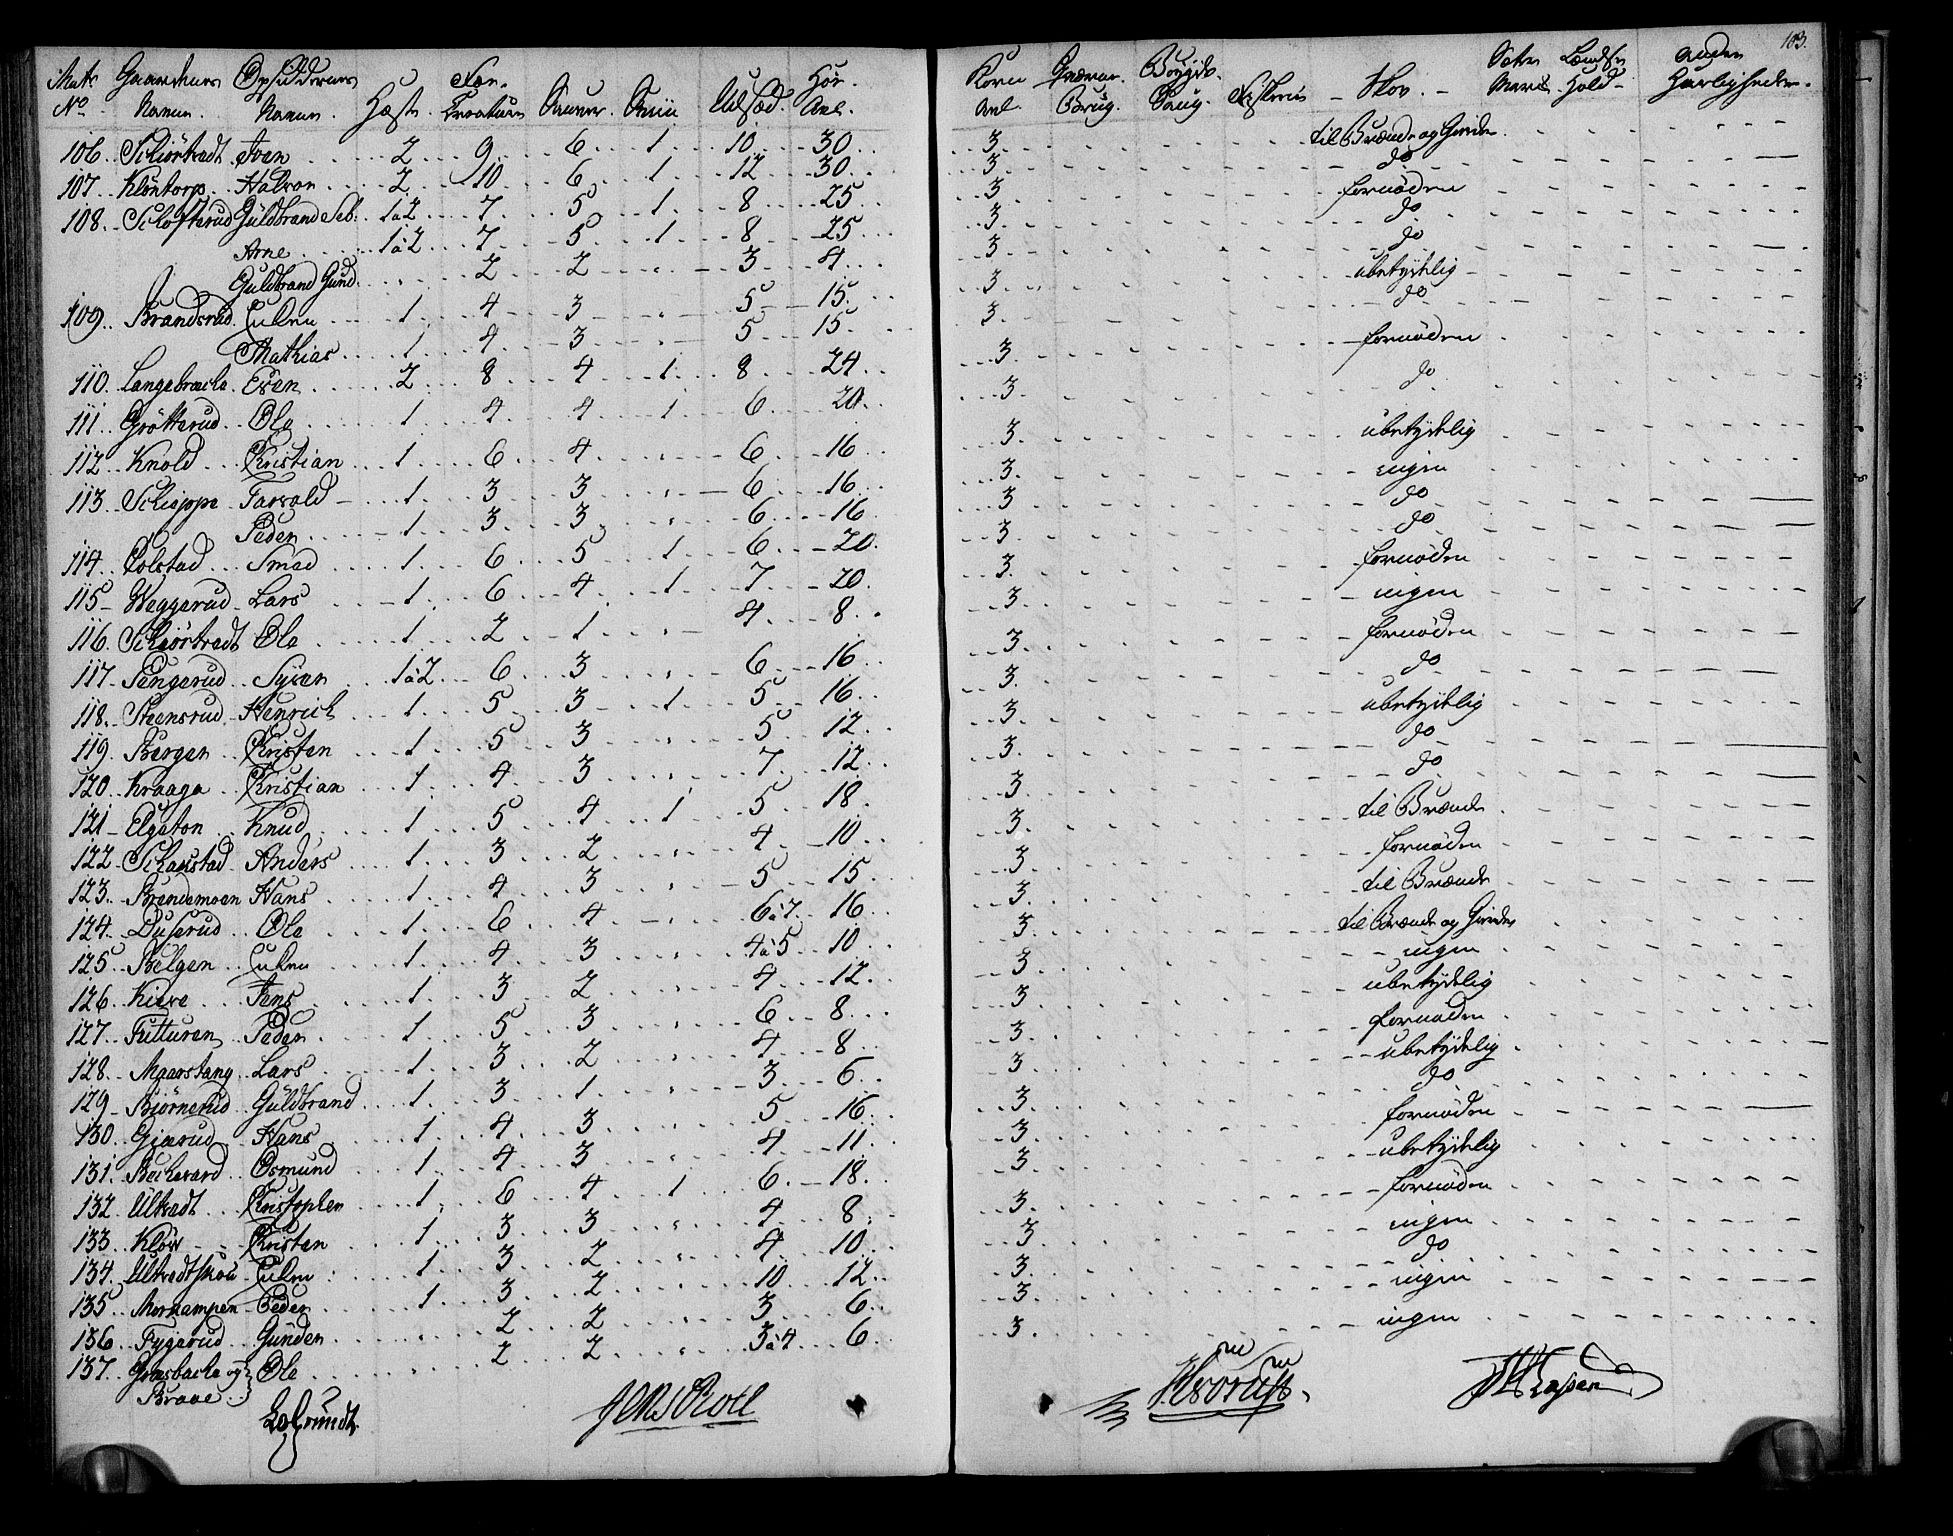 103.
Matr No Gaardenes Navne. Opsidderens Navne. Hæste. Fæe-Creature Suner. Sviin Udsæd. Høe-Avl. Korn Avl. Qværne-Brug. Bøigde-Saug. Fiskerie Skov. Sæter Havn Lændse Hold Anden Herlighed
106. Schiörtvedt Iver 2 9 6 1 10 30 3 til Brænde og Gierder
107. Klöntorp Halvor 2 10 6 1 12 30 3 do
108. Schofterud Guldbrand Seb. 1 a 2 7 5 1 8 25 3 fornöden
Arne 1 a 2 7 5 1 8 25 3 do
Guldbrand Gund. 2 2 3 4 3 do
109. Brandsrud 1 4 3 5 15 3 ubetydelig
Mathias 1 4 3 5 15 3 do
110. Langebrache Even 2 8 4 1 8 24 3 fornöden
111. Grötterud Ole 1 4 4 1 6 20 3 do
112. Knold Christian 1 6 4 6 16 3 ubetydelig
113. Schieppe Tarvald 1 3 3 6 16 3 ingen
Peder 1 3 3 6 16 3 do
114. Colstad Smed 1 6 5 1 6 20 3 do
115 Weggerud Lars 1 6 4 1 7 20 3 fornöden
116. Schiörtvedt Ole 1 2 1 4 8 3 ingen
117. Pengerud Syver 1 a 2 6 3 6 16 3 fornöden
118. Steensrud Henrich 1 5 3 1 5 16 3 do
119. Bergen Christen 1 5 3 5 12 3 ubetydelig
120. Kraaga Christian 1 4 3 7 12 3 do
121 Elgeton Knud 1 5 4 1 5 18 3 do
122. Schanstad Anders 1 3 2 4 10 3 til Brænde
123. Brendemoen Hans 1 4 3 5 15 3 fornöden
124. Duserud Ole 1 6 4 6 a 7 16 3 til Brænde
125. Helgen 1 4 3 4 a 5 10 3 til Brænde og Gierder
126. Kieve Jens 1 3 2 4 12 3 ingen
127. Futturen Peder 1 5 3 6 8 3 ubetydelig
128. Maarstang Lars 1 3 2 4 8 3 fornöden
129 Biörnerud Guldbrand 1 3 1 3 6 3 ubetydelig
130. Gjærud Hans 1 4 3 5 16 3 do
131. Beckevard Osmund 1 4 3 4 11 3 fornöden
132. Ultvedt Christopher 1 6 4 1 6 18 3 ubetydelig
133. Klöv Christen 1 3 3 4 8 3 fornöden
134. Ultvedtskou 1 3 2 4 10 3 ingen
135. Morkampen Peder 1 3 2 10 12 3 do
136. Fygerud Gunder 2 2 3 6 3 ingen
137. Græsbache og Braae Ole 2 2 3 a 4 6 3 ingen